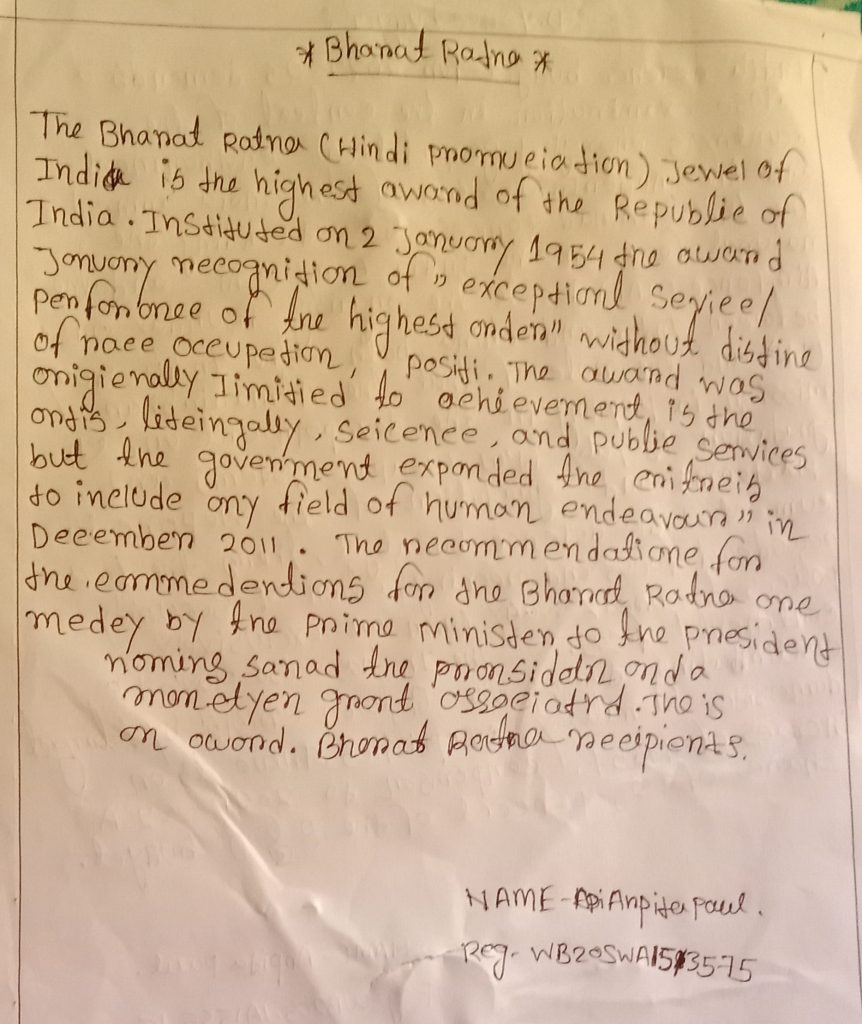 * Bharat Ratna *
The Bharat Ratna (Hindi pronuciation) Jewel of
India is the highest award of the Republic of
India. Instituted on 2 January 1954 the award
January recognition of " exceptionl Seviee/
Perforbnce of the highest order" without distinc
of race occupetion, positi. The award was
origienally limitied to achievement is the
ortis, liteingally, seicence, and public services
but the government expanded the criterias
to include any field of human endeavour" in
December 2011. The recommendatione for
the commedentions for the Bharat Ratna are
medey by the prime minister to the president
noming sanad the pronsident and a
monetyen grant associatrd. The is
an award. Bharat Ratna recipients.
NAME - Arpita Paul.
Reg- WB20SWA1533575